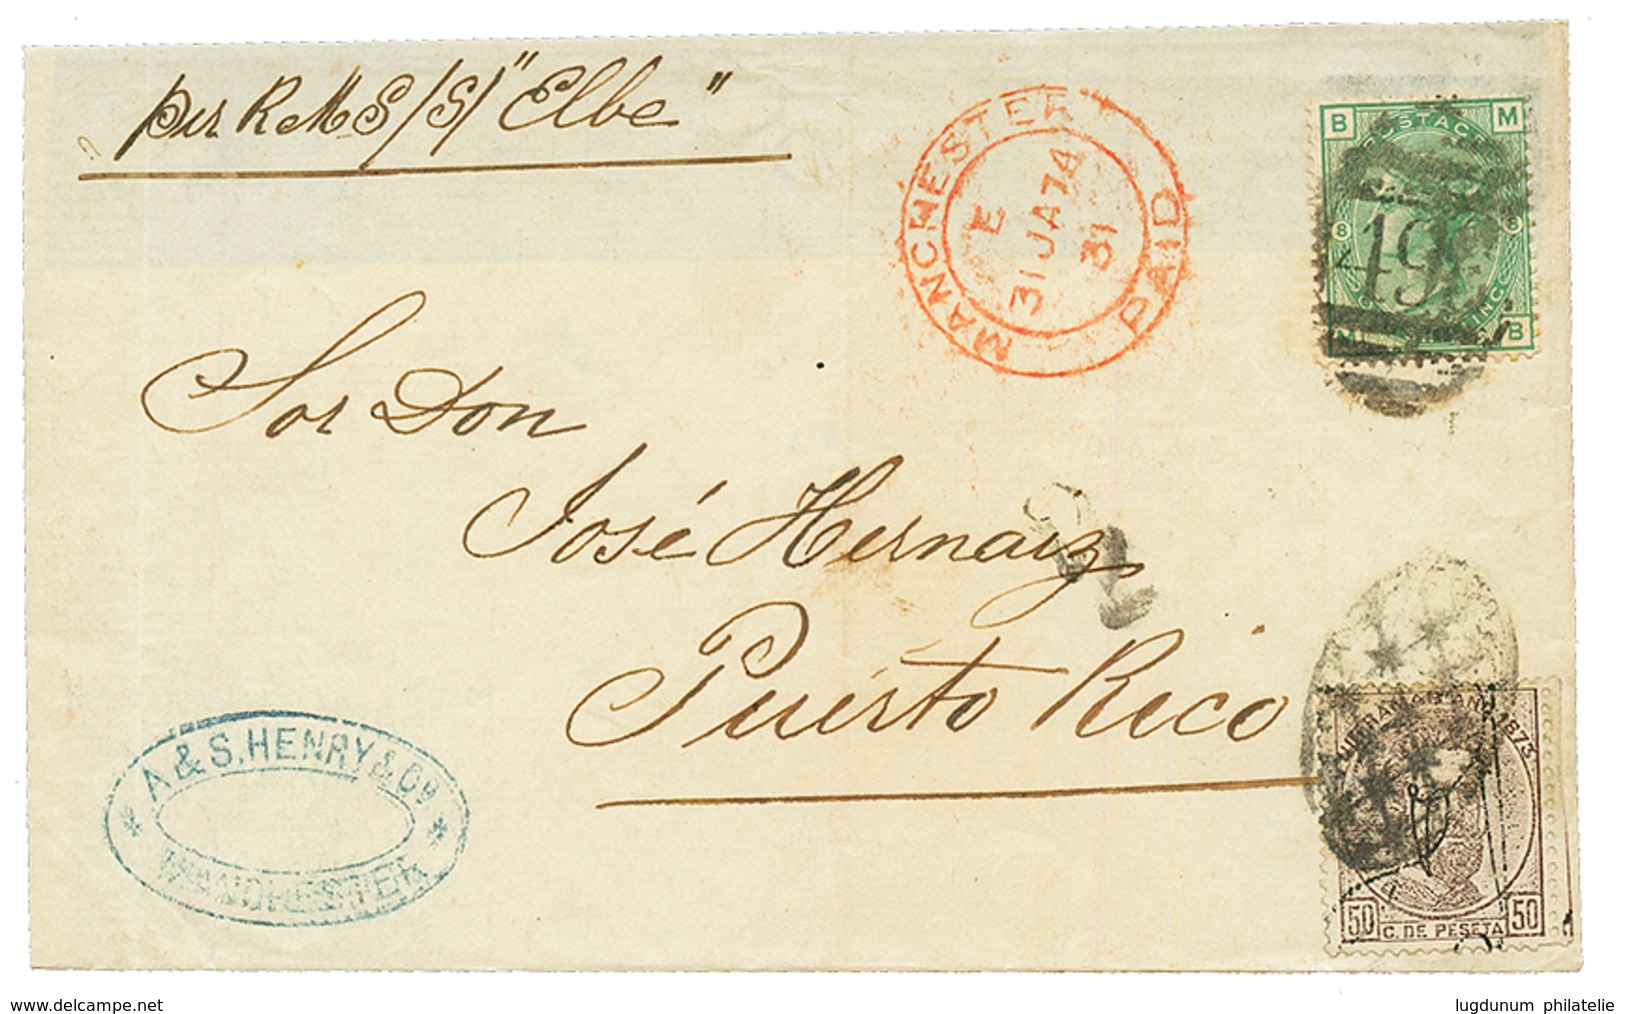 per RMS/S/ "Elbe"
MANCHESTER
E
31 JA 74
31
PAID
B M
POSTAGE
8 8
498.
M B
Sor Don
José Hernaiz
Puerto Rico
A & S. HENRY & Co
MANCHESTER
ULTRAMAR AÑO 1873
50 C. DE PESETA 50
www.delcampe.net
lugdunum philatelie